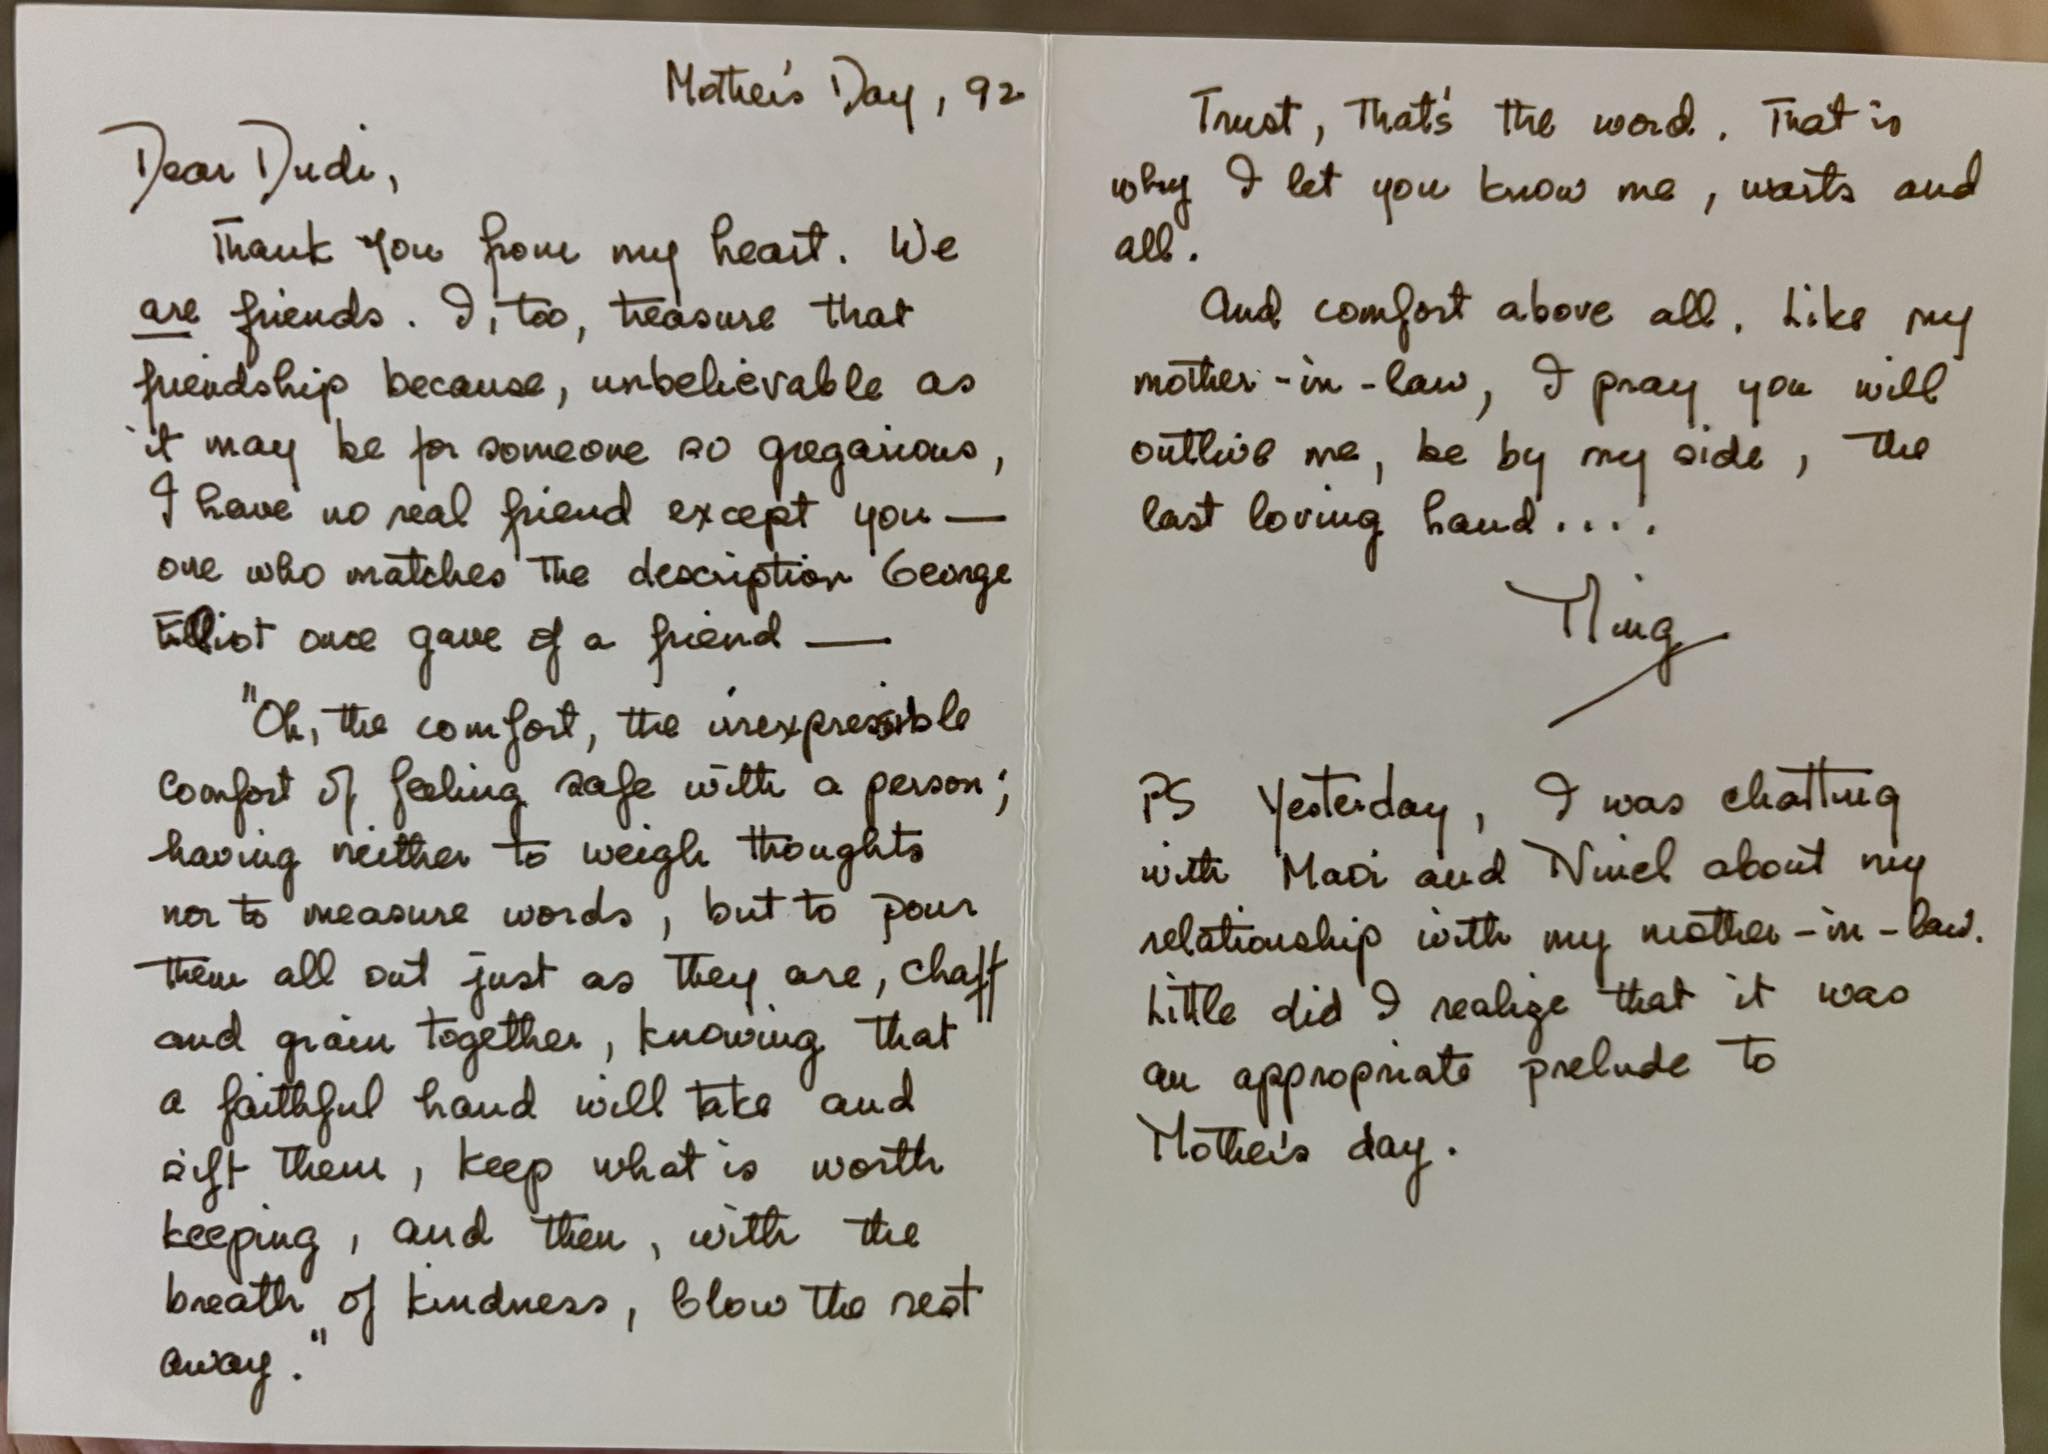 Mother's Day, 92
Dear Dudi,
Thank you from my heart. We
are friends. I, too, treasure that
friendship because, unbelievable as
it may be for someone so gregarious,
I have no real friend except you —
one who matches the description George
Elliot once gave of a friend —
"Oh, the comfort, the inexpressible
comfort of feeling safe with a person;
having neither to weigh thoughts
nor to measure words, but to pour
them all out just as they are, chaff
and grain together, knowing that
a faithful hand will take and
sift them, keep what is worth
keeping, and then, with the
breath of kindness, blow the rest
away."
Trust, that's the word. That is
why I let you know me, warts and
all.
And comfort above all. Like my
mother-in-law, I pray you will
outlive me, be by my side, the
last loving hand....
Ting
PS Yesterday, I was chatting
with and about my
relationship with my mother-in-law.
Little did I realize that it was
an appropriate prelude to
Mother's day.